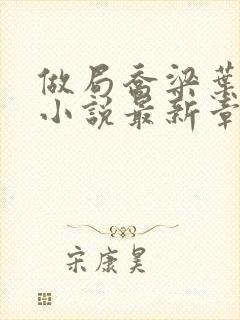 做局乔梁葉
小説最新章
宋康昊